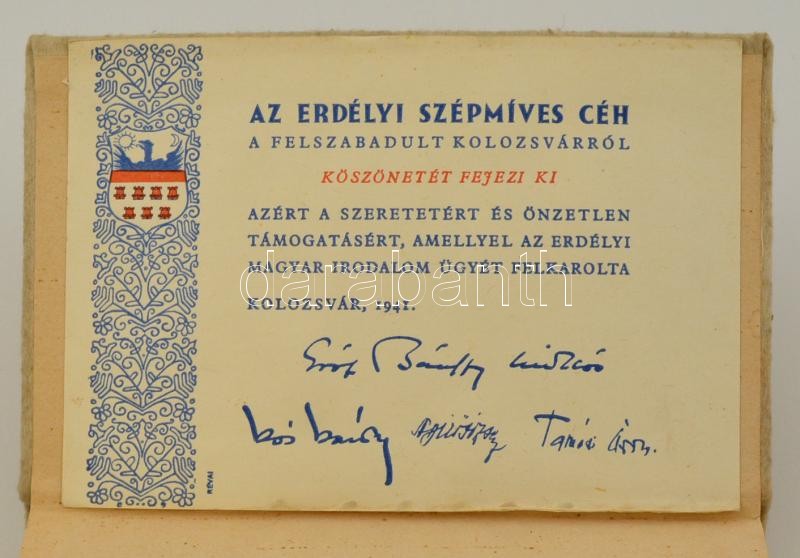 AZ ERDÉLYI SZÉPMÍVES CÉH
A FELSZABADULT KOLOZSVÁRRÓL
KÖSZÖNETÉT FEJEZI KI
AZÉRT A SZERETETÉRT ÉS ÖNZETLEN
TÁMOGATÁSÉRT, AMELLYEL AZ ERDÉLYI
MAGYAR IRODALOM ÜGYÉT FELKAROLTA
darabanth
KOLOZSVÁR, 1941.
Gróf Bánffy Miklós
Kós Károly Tamási Áron.
RÉVAI